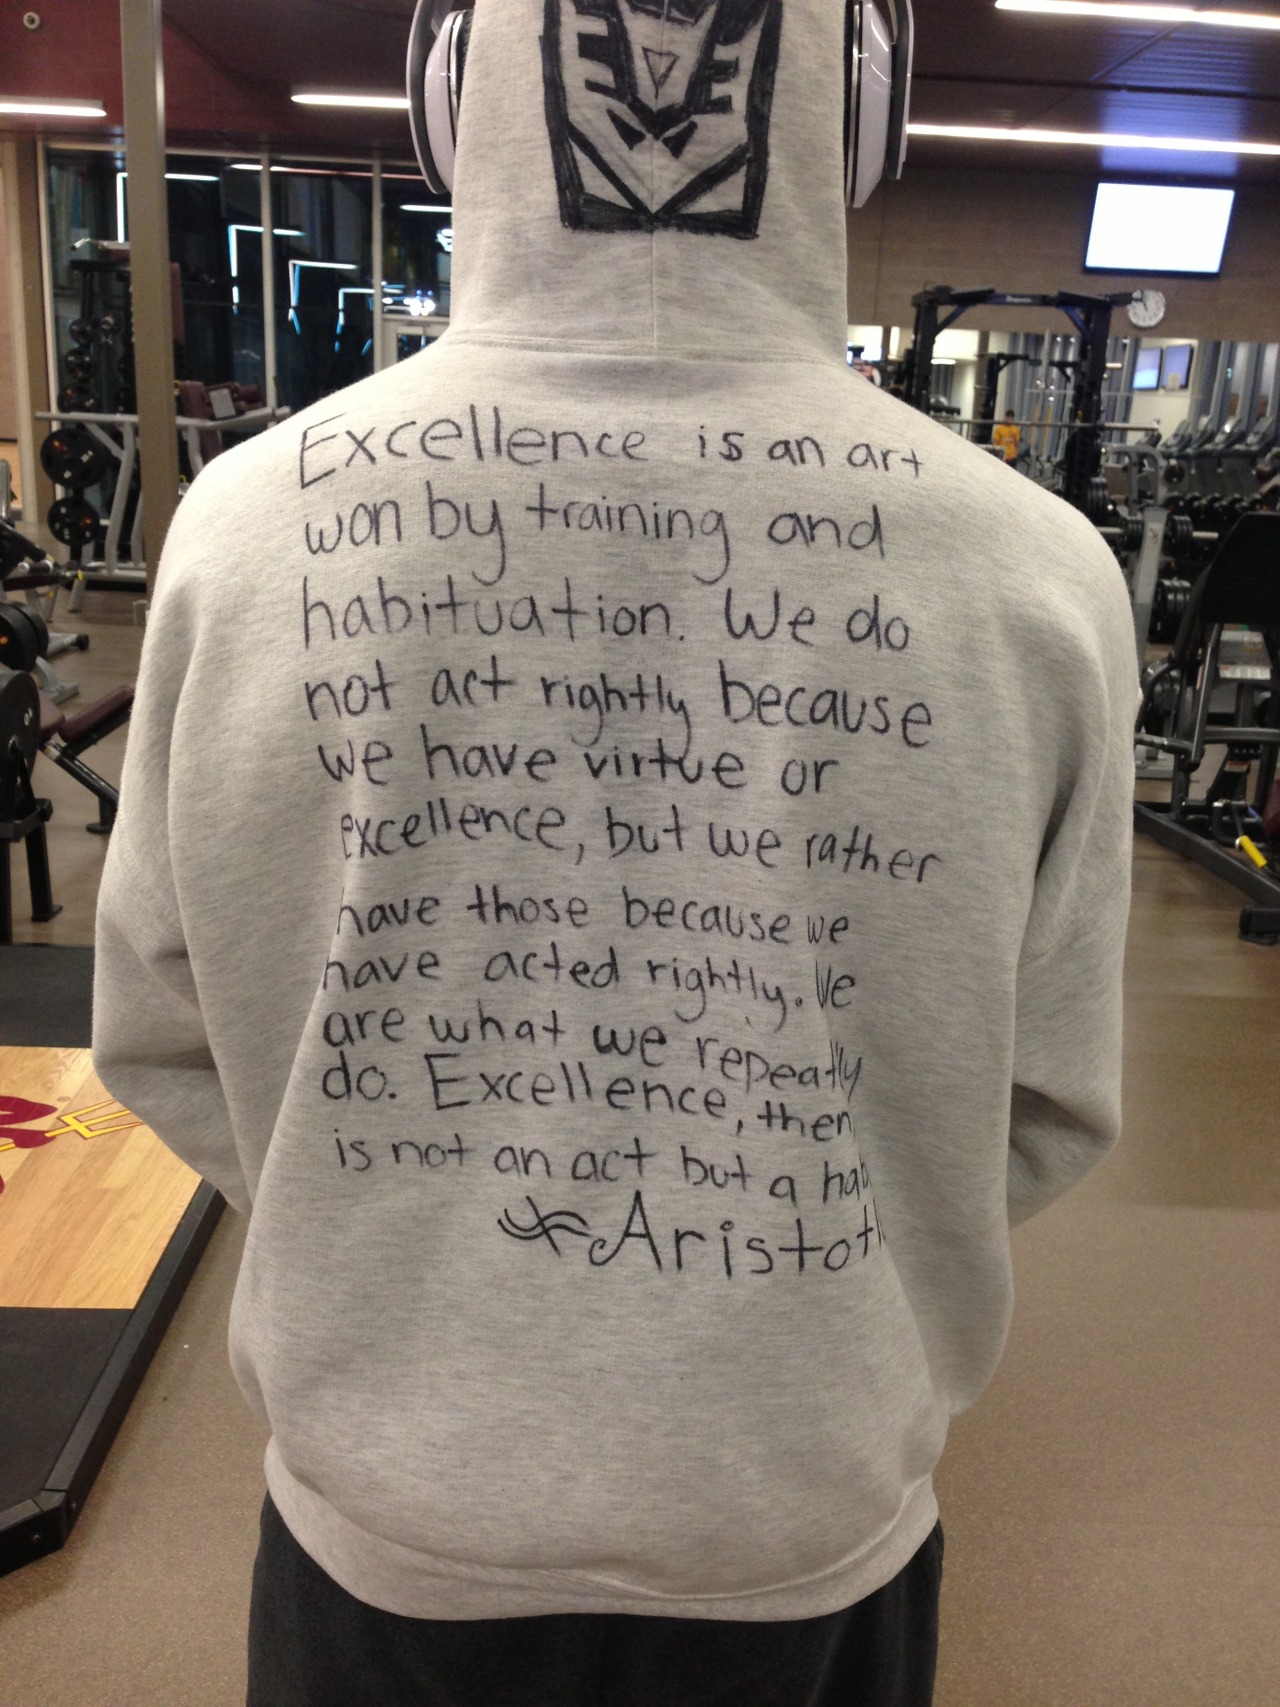 Excellence is an art
won by training and
habituation. We do
not act rightly because
we have virtue or
excellence, but we rather
have those because we
have acted rightly. We
are what we repeatly
do. Excellence, then
is not an act but a